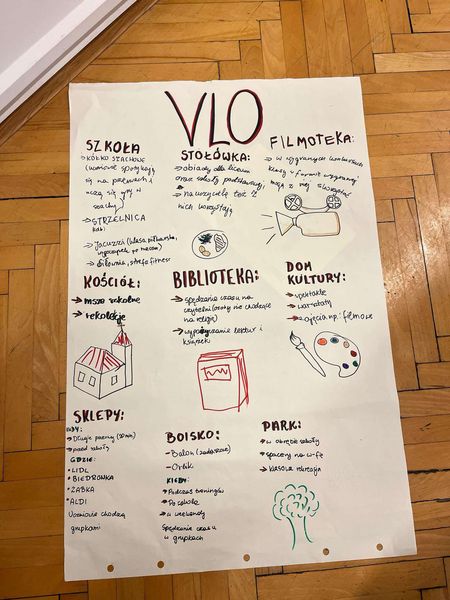 VLO
SZKOŁA
→ KÓŁKO SZACHOWE
(uczniowie spotykają
się na przerwach i
uczą się gry w
szachy)
→ STRZELNICA
→ Jacuzzi (klasa piłkarska,
→ Siłownia, strefa fitness
STOŁÓWKA:
→ obiady dla liceum
oraz szkoły podstawowej
→ nauczyciele też z
nich korzystają
FILMOTEKA:
→ w wygranych konkursach
klasy w formie wygranej
mogą z niej skorzystać
KOŚCIÓŁ:
→ msze szkolne
→ rekolekcje
BIBLIOTEKA:
→ spędzanie czasu na
czytelni (osoby nie chodzące
na religię)
→ wypożyczanie lektur i
książek
DOM
KULTURY:
→ spektakle
→ warsztaty
→ zajęcia np: filmowe
SKLEPY:
→ Długie przerwy
→ przed szkołą
GDZIE:
• LIDL
• BIEDRONKA
• ŻABKA
• ALDI
Uczniowie chodzą
grupkami
BOISKO:
- Balon (zadaszone)
- Orlik
KIEDY:
→ Podczas treningów
→ Po szkole
→ w weekendy
Spędzanie czasu
w grupkach
PARK:
→ w obrębie szkoły
→ spacery na w-fie
→ klasowa rekreacja